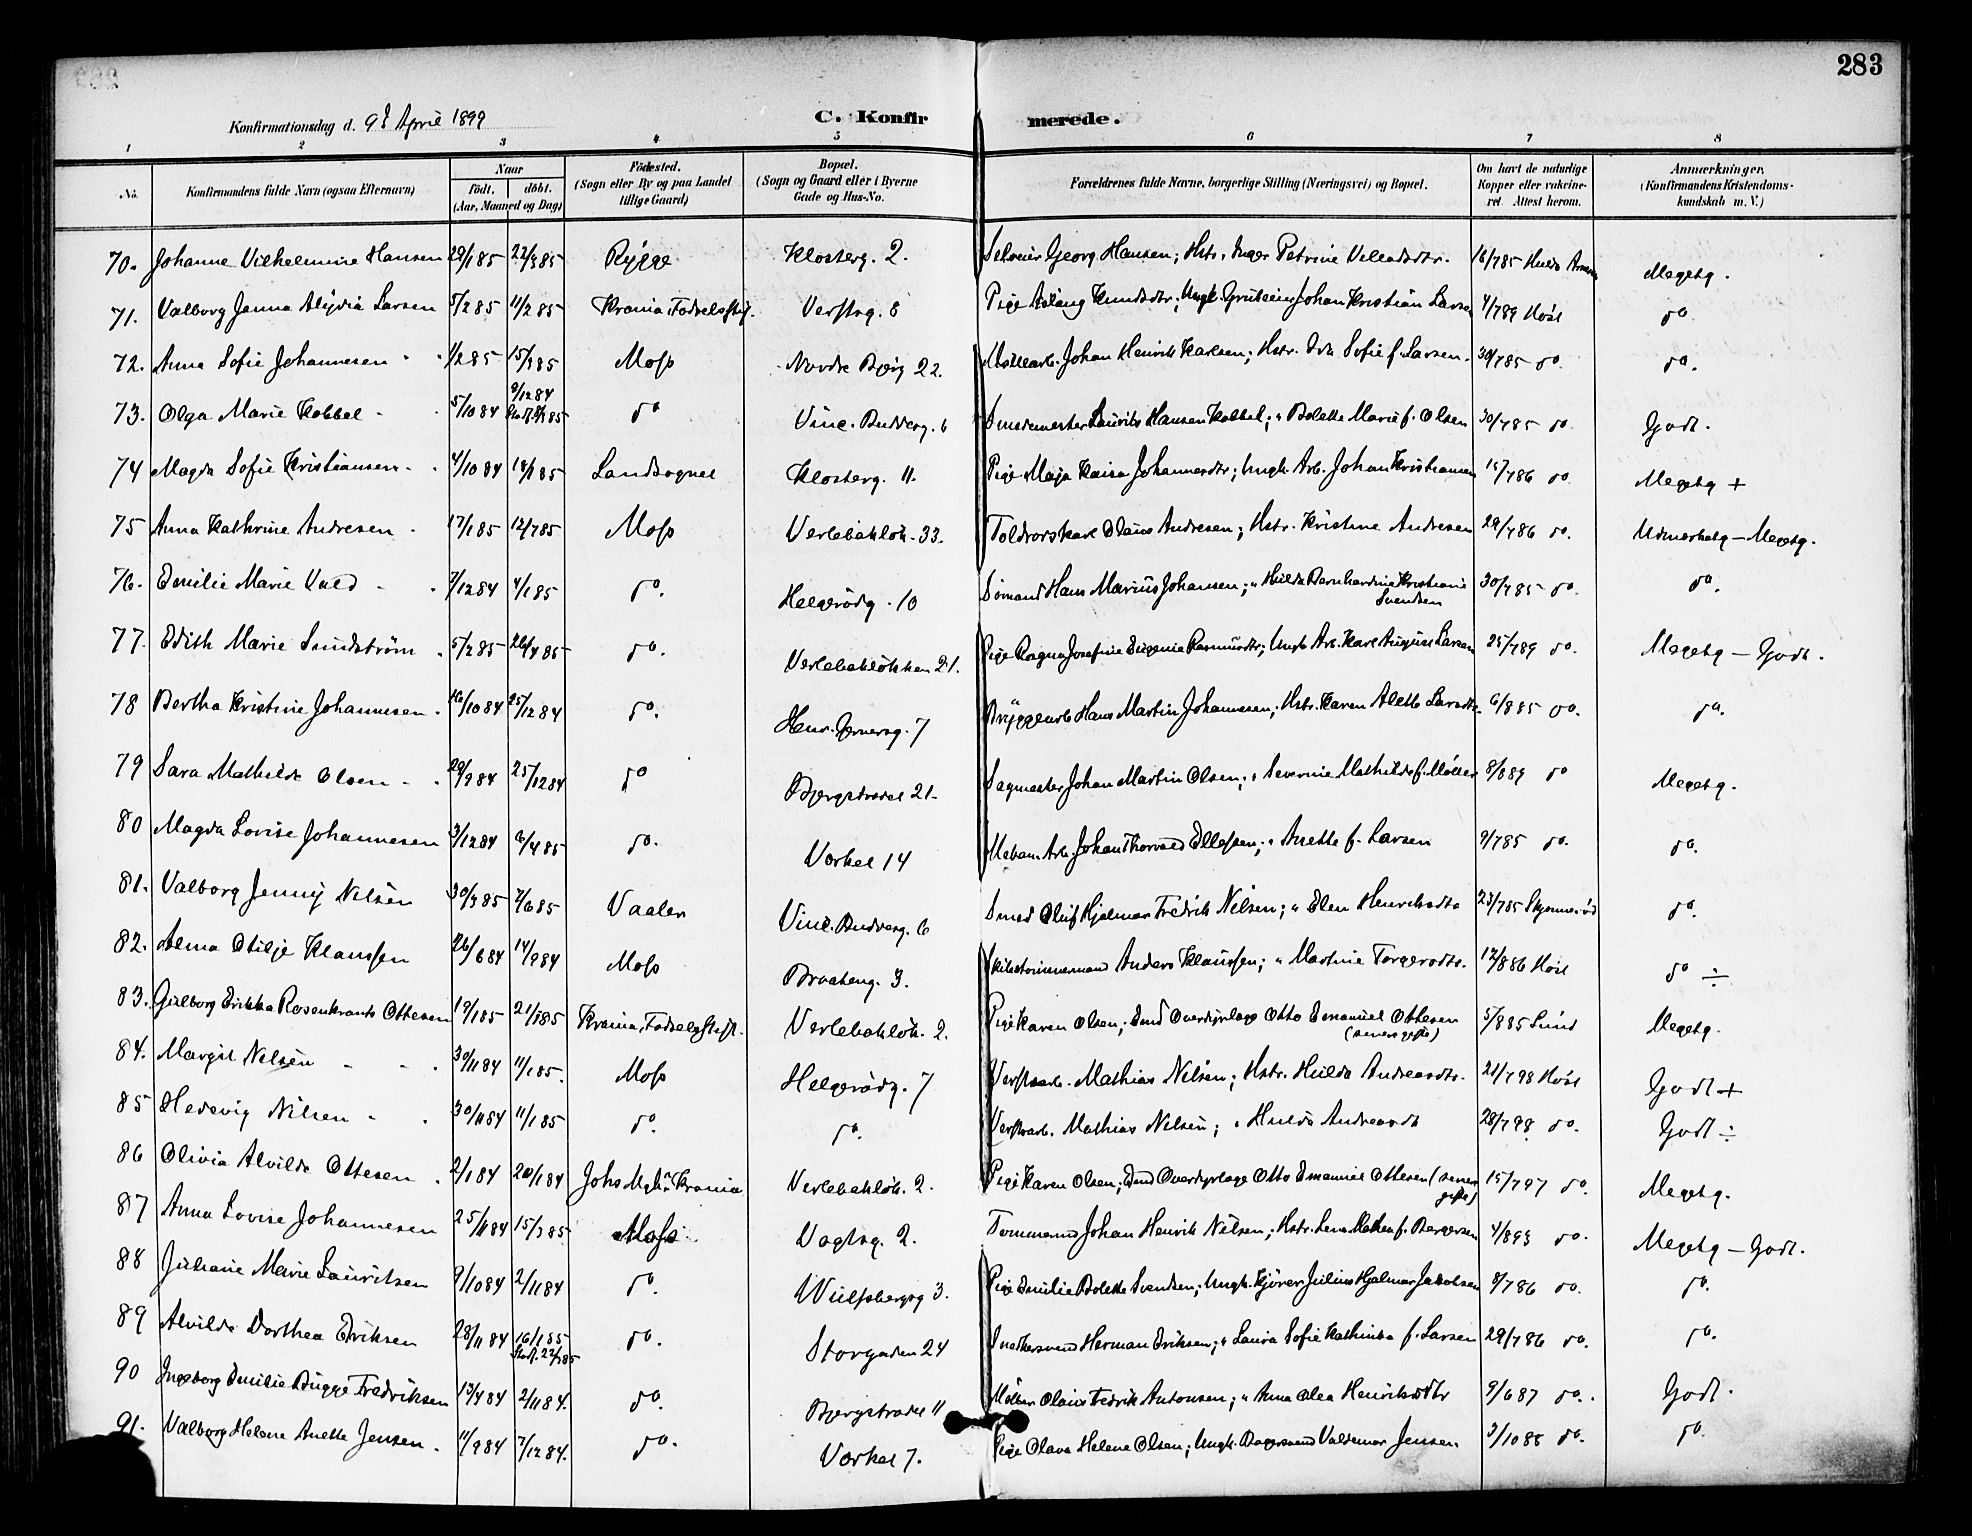 283
Konfirmationsdag d. 9de April 1899
C. Konfirmerede.
1 2 3 4 5 6 7 8
No. Konfirmandens fulde Navn (ogsaa Efternavn) Naar født. døbt. (Aar, Maaned og Dag) Fødested. (Sogn eller By og paa Landet tillige Gaard) Bopæl. (Sogn og Gaard eller i Byerne Gade og Hus-No. Forældrenes fulde Navne, borgerlige Stilling (Næringsvei) og Bopæl. Om havt de naturlige Kopper eller vakcineret Attest herom. Anmærkninger. (Konfirmandens Kristendomskundskab m. V.)
70. Johanne Vilhelmine Hansen 29/1 85 22/3 85 Rygge Klosterg. 2. Georg Hansen; Hstr. Inger Petrine 16/7 85 Meget g.
71. Valborg Jenna Alydia Larsen 5/2 85 11/2 85 Krania Fødselsstif. Verftsg. 8 Pige Aslaug Knudsdtr; Ungk. Johan Kristian Larsen 4/7 89 Høst do
72. Anna Sofie Johannesen 1/2 85 15/3 85 Moss Nordre Bjerg 22. Johan Henrik Karlsen; Hstr. Ida Sofie f. Larsen. 30/7 85 do. do.
73. Olga Marie Kobbel 5/10 84 9/12 84 do Vinc. Budderg. 6 Smedmester Laurits Hansen Kobbel; " Bolette Marie f. Olsen 30/7 85 do Godt.
74 Magda Sofie Kristiansen 4/10 84 18/1 85 Landsognet Klosterg. 11. Pige Maja Kaisa Johannesdtr; Ungk. Arb. Johan Kristiansen 15/7 86 do Meget g +
75 Anna Kathrine Andresen 17/1 85 12/7 85 Moss Verlebakløk. 33. Toldrorskarl Olaus Andresen; Hstr. Kristine Andresen 29/7 86 do. Udmerket g – Meget g.
76. Emilie Marie Vold 7/12 84 4/1 85 do. Helgerødg. 10 Sømand Hans Marius Johansen; " Hulda Bernhardine Kristiane Svendsen 30/7 85 do. do.
77. Edith Marie Sundstrøm 5/2 85 26/4 85 do. Verlebakløkken 21. Pige Ragna Josefine Eugenia Rasmusdtr; Ungk. Arb. Karl August Larsen 25/7 89 do. Meget g – Godt.
78 Bertha Kristine Johannesen 16/10 84 25/12 84 do. Henr. Gernersg. 7 Bryggearb Hans Martin Johannesen; Hstr. Karen Alette Larsdtr. 6/8 85 do. do.
79 Sara Mathilde Olsen 29/9 84 25/12 84 do Bjergstrædet 21. Sagmester Johan Martin Olsen; " Severine Mathilde f. Møller 8/8 89 do Meget g.
80 Magda Lovise Johannesen 3/12 84 6/4 85 do. Værket 14 Mekan. Arb. Johan Thorvald Ellefsen; " Anette f. Larsen 9/7 85 do. do.
81. Valborg Jenny Nilsen 30/3 85 7/6 85 Vaaler Vinc. Budderg. 6 Smed Oluf Hjalmar Fredrik Nilsen; " Elen Henriksdtr 23/7 85 Skjønnerød do.
82. Alma Otilje Klaussen 26/6 84 14/9 84 Moss Braateng. 3. Skibstømmermand Anders Klaussen; " Martine Torgersdtr. 12/8 86 Høst do ÷
83. Gulborg Erikka Rosenkrants Ottesen 19/1 85 21/1 85 Krania, Fødselsstift. Verlebakløk. 2. Pige Karen Olsen; Overdyrlæge Otto Emanuel Ottesen (senere gifte) 5/8 85 Lund Meget g.
84. Margit Nilsen 30/11 84 11/1 85. Moss Helgerødg. 7 Verftsarb. Mathias Nilsen; Hstr. Hulda Andreasdtr. 21/7 98 Høst Godt +
85 Hedevig Nilsen 30/11 84 11/1 85 do. do. Verftsarb. Mathias Nilsen; " Hulda Andreasdt 28/7 98 do. Godt ÷
86 Olivia Alvilde Ottesen 2/1 84 20/1 84 Johs Mgh. Krania Verlebakløk. 2. Pige Karen Olsen; Overdyrlæge Otto Emanuel Ottesen (senere gifte) 15/7 97 do. Meget g.
87 Anna Lovise Johannesen 25/11 84 15/3 85 Moss Vogtsg. 2. Tømmermd Johan Henrik Nilsen; Hstr. Lena f. Bergersen 4/8 93 do. Meget g – Godt.
88 Juliane Marie Lauritsen 9/10 84 2/11 84 do. Wulfsbergsg 3. Pige Emilie Bolette Svendsen; Ungk. Kjører Julius Hjalmar Jakobsen 8/7 86 do. do.
89 Alvilde Dorthea Eriksen 28/11 84 16/1 85 do. Storgaden 24 Snedkersvend Herman Eriksen; " Laura Sofie Kathinka f. Larsen 29/7 86 do. do.
90 Ingeborg Emilie Bugge Fredriksen 13/4 84 2/11 84. do. Bjergstrædet 11 Møller Olaus Fredrik Antonsen; " Anna Olea Henriksdtr 9/6 87 do. Godt.
91. Valborg Helene Anette Jensen 11/9 84 7/12 84. do. Værket 7. Pige Olava Helene Olsen; Ungk. Bagersvend Valdemar Jensen 3/10 88 do. do.